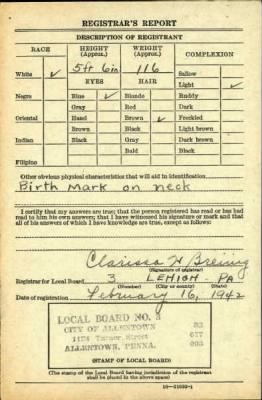 REGISTRAR'S REPORT
DESCRIPTION OF REGISTRANT
RACE HEIGHT (Approx.) WEIGHT (Approx.) COMPLEXION
White ✓ 5ft 6in 116 Sallow
EYES HAIR Light ✓
Negro Blue ✓ Blonde Ruddy
Gray Red Dark
Oriental Hazel Brown ✓ Freckled
Brown Black Light brown
Indian Black Gray Dark brown
Bald Black
Filipino
Other obvious physical characteristics that will aid in identification
Birth Mark on neck
I certify that my answers are true; that the person registered has read or has had
read to him his own answers; that I have witnessed his signature or mark and that
all of his answers of which I have knowledge are true, except as follows:
Clarissa H
(Signature of registrar)
Registrar for Local Board 3 LEHIGH - PA
(Number) (City or county) (State)
Date of registration February 16, 1942
LOCAL BOARD NO. 3
CITY OF ALLENTOWN
Street
ALLENTOWN, PENNA.
(STAMP OF LOCAL BOARD)
(The stamp of the Local Board having jurisdiction of the registrant
shall be placed in the above space)